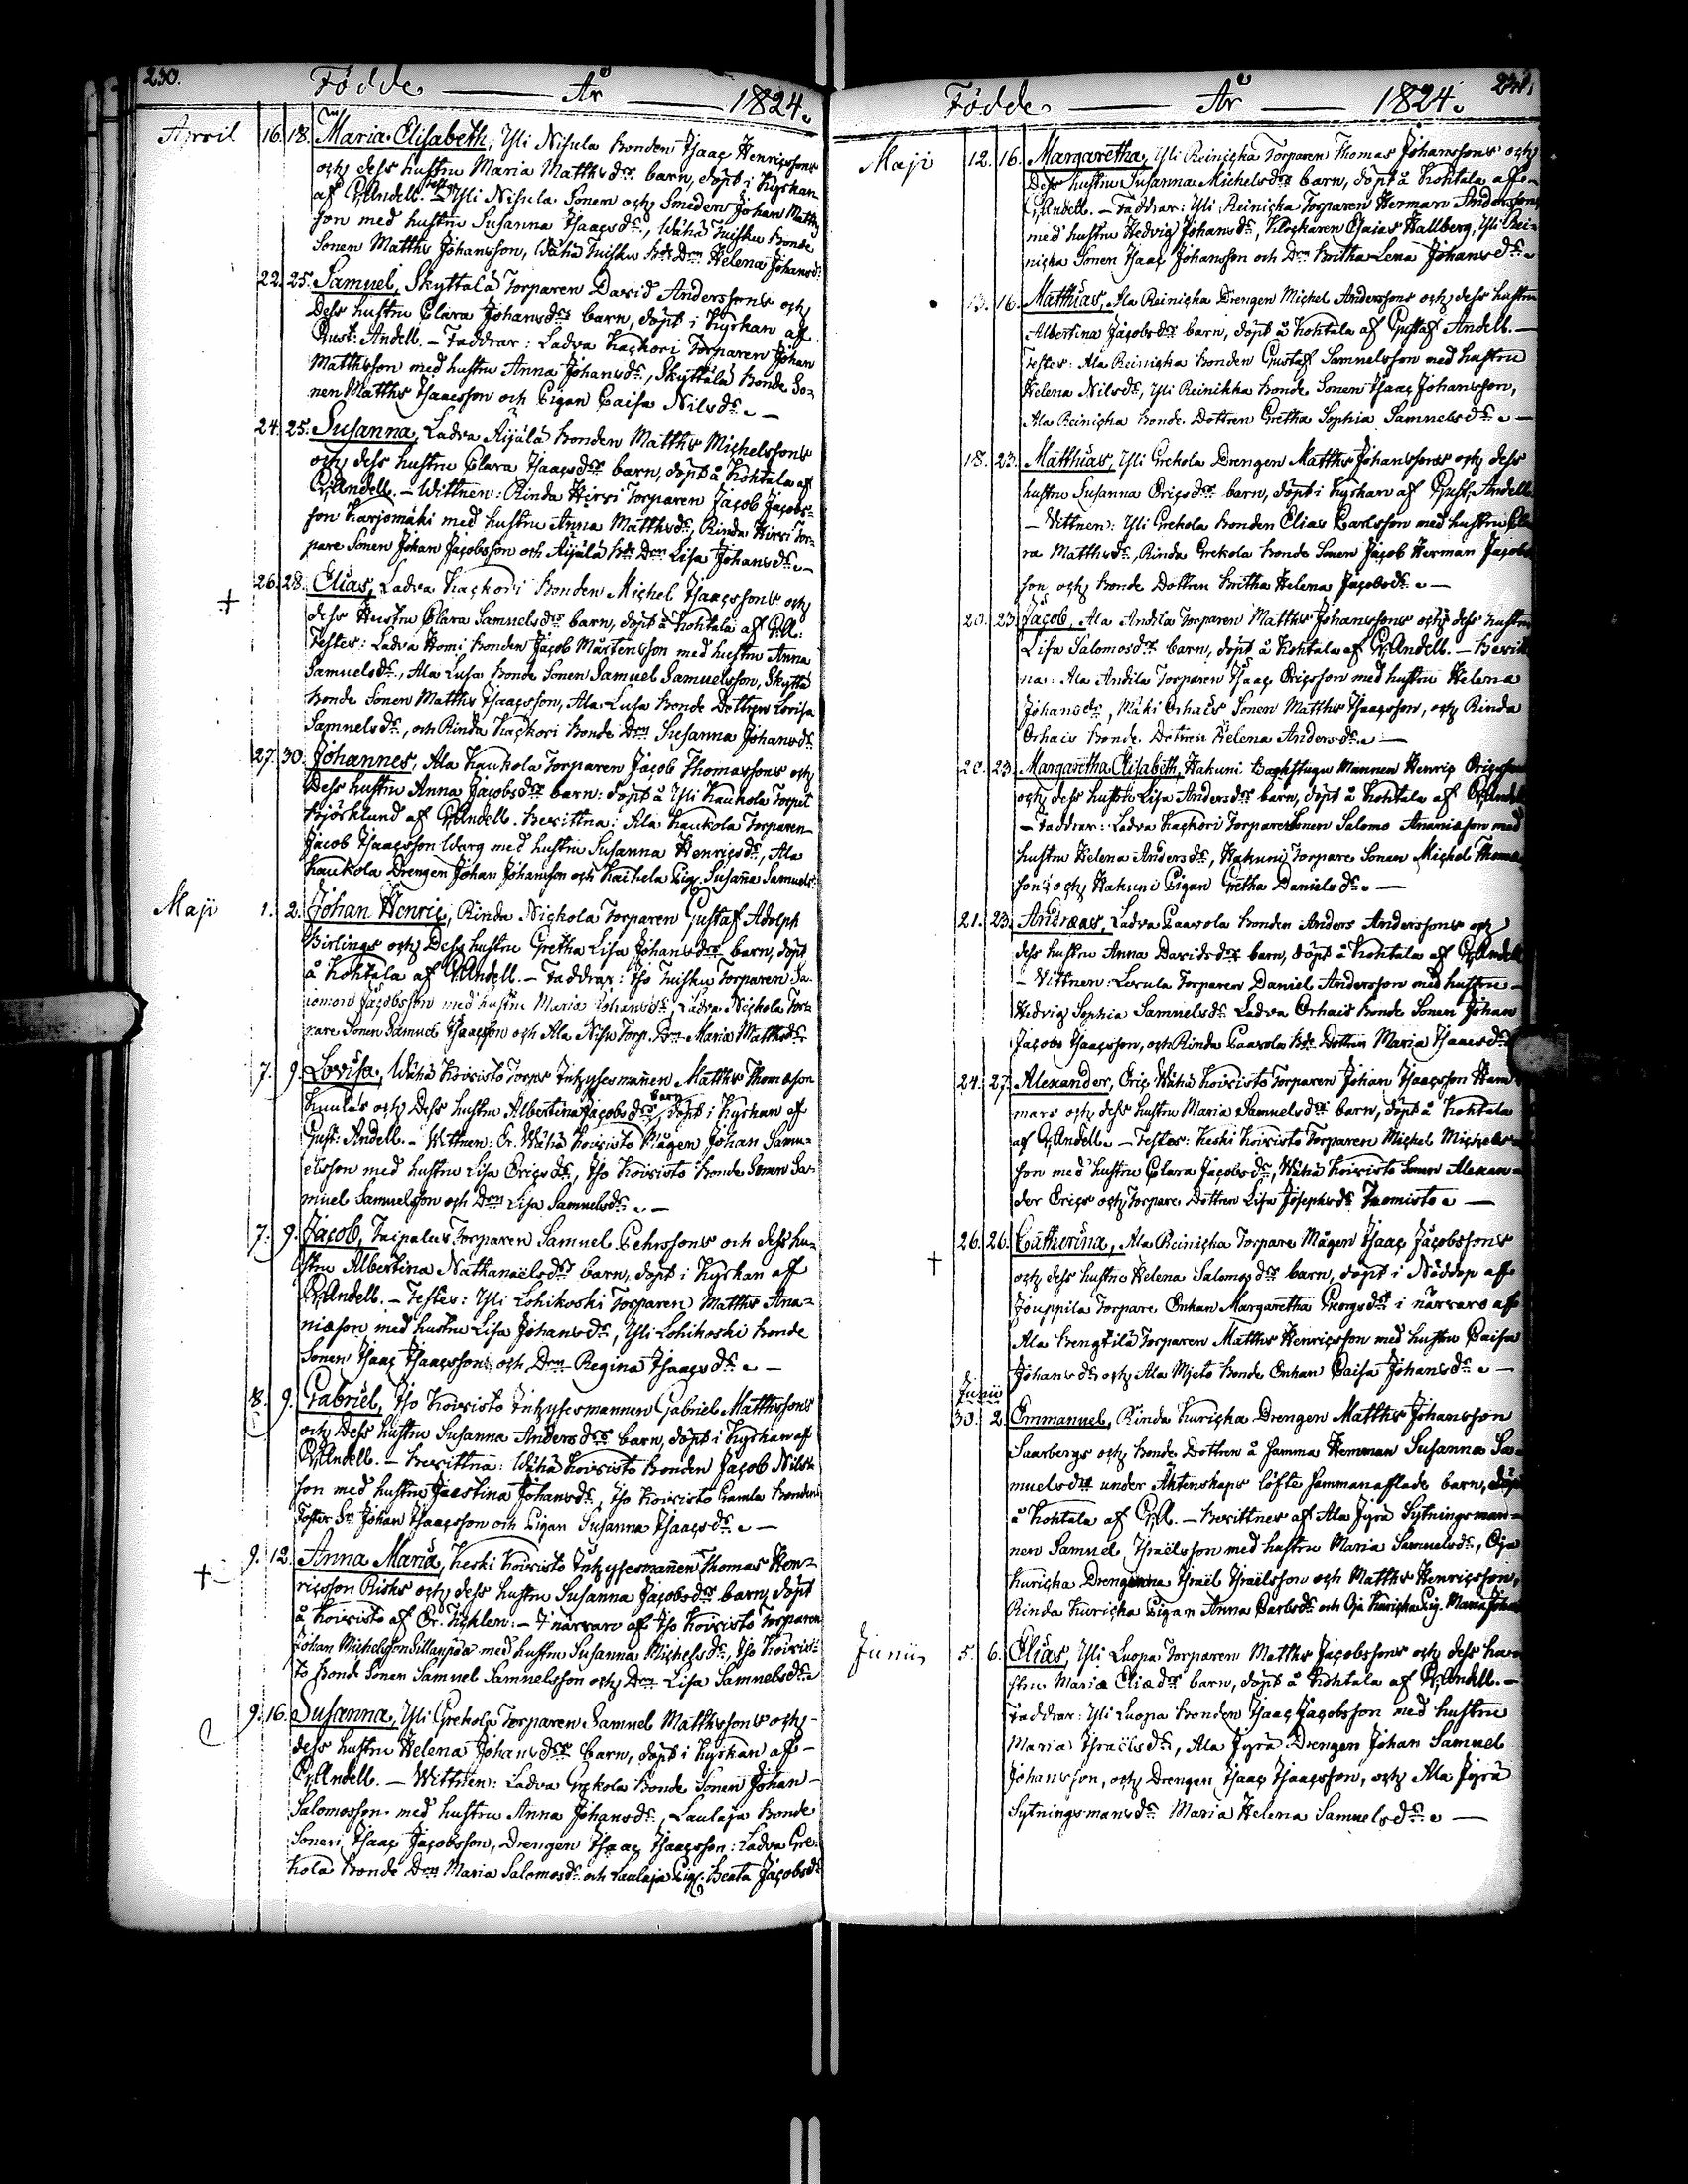 230.
Födde — År — 1824.
April 16. 18. Maria Elisabeth, Yli Nisula Bonden Isaac Henricssons
och dess hustru Maria Matthsdrs barn, döpt i Kyrkan
af G. Andell. Testes Yli Nisula Sonen och Smeden Johan Matths
son med hustru Susanna Isaacsdr, Wähä Tuisku Bonde
Sonen Matths Johansson, Wähä Tuisku Bde Drn Helena Johansdr
22. 25. Samuel, Skyttälä Torparen David Anderssons och
Dess hustru Clara Johansdrs barn, döpt i Kyrkan af
Gust: Andell. – Faddrar: Ladva Kackori Torparen Johan
Matthsson med hustru Anna Johansdr, Skyttälä Bonde So-
nen Matths Isaacsson och Pigan Caisa Nilsdr. –
24. 25. Susanna, Ladva Äijälä Bonden Matths Michelssons
och dess hustru Clara Isaacsdrs barn, döpt å Kohtala af
G. Andell. – Wittnen: Rinda Hirvi Torparen Jacob Jacobs-
son Karjomäki med hustru Anna Matthsdr, Rinda Hirvi Tor-
pare Sonen Johan Jacobsson och Äijälä Bde Drn Lisa Johansdr. –
† 26. 28. Elias, Ladva Kackori Bonden Michel Isaacssons och
dess Hustru Clara Samuelsdrs barn, döpt å Kohtala af G. A.
Testes: Ladva Homi Bonden Jacob Mårtensson med hustru Anna
Samuelsdr, Ala Lusa Bonde Sonen Samuel Samuelsson, Skyttä
Bonde Sonen Matths Isaacsson, Ala Lusa Bonde Dottren Lovisa
Samuelsdr, och Rinda Kackori Bonde Drn Susanna Johansdr
27. 30. Johannes, Ala Kaukola Torparen Jacob Thomassons och
Dess hustru Anna Jacobsdrs barn: döpt å Yli Kaukola Torpet
Björklund af G. Andell. Bevittna: Ala Kaukola Torparen
Jacob Isaacsson Warg med hustru Susanna Henricsdr, Ala
Kaukola Drengen Johan Johansson och Kaihela Pig. Susanna Samuelsdr
Maji 1. 2. Johan Henric, Rinda Nickola Torparen Gustaf Adolph
Birlings och Dess hustru Gretha Lisa Johansdrs barn, döpt
å Kohtala af G. Andell. – Faddrar: Iso Tuisku Torparen Sa-
lomon Jacobsson med hustru Maria Johansdr, Ladva Nickola Tor-
pare Sonen Samuel Isaacsson och Ala Nisu Torp. Drn Maria Matthsdr
7. 9. Lovisa, Wähä Koivisto Torps Inhysesmannen Matths Thomasson
Knuutas och Dess hustru Albertina Jacobsdrs barn, döpt i Kyrkan af
Gust: Andell. – Wittnen: Er. Wähä Koivisto Mågen Johan Samu-
elsson med hustru Lisa Ericsdr, Iso Koivisto Bonde Sonen Sa-
muel Samuelsson och Drn Lisa Samuelsdr. –
7. 9. Jacob, Taipalus Torparen Samuel Pehrssons och dess hu-
stru Albertina Nathanaëlsdrs barn, döpt i Kyrkan aff
G. Andell. – Testes: Yli Lohikoski Torparen Matths Ana-
niæson med hustru Lisa Johansdr, Yli Lohikoski Bonde
Sonen Isaac Isaacsson och Drn Regina Isaacsdr. –
8. 9. Gabriel, Iso Koivisto Inhysesmannen Gabriel Matthssons
och Dess hustru Susanna Andersdrs barn, döpt i Kyrkan af
G. Andell. – Bevittna: Wähä Koivisto Bonden Jacob Nils-
son med hustru Justina Johansdr, Iso Koivisto Gamla Bondens
Foster Sn Johan Isaacsson och Pigan Susanna Isaacsdr. –
† 9. 12. Anna Maria, Keski Koivisto Inhysesmannen Thomas Hen-
ricsson Risks och dess hustru Susanna Jacobsdrs barn, döpt
å Koivisto af Er. Kihlen: – I närvaro af Iso Koivisto Torparen
Johan Michelsson Sillanpää med hustru Susanna Michelsdr, Iso Koivis-
to Bonde Sonen Samuel Samuelsson och Drn Lisa Samuelsdr.
9. 16. Susanna, Yli Grekola Torparen Samuel Matthssons och
dess hustru Helena Johansdrs barn, döpt i Kyrkan af
G. Andell. – Wittnen: Ladva Grekola Bonde Sonen Johan
Salomosson med hustru Anna Johansdr, Laulaja Bonde
Sonen Isaac Jacobsson, Drengen Isaac Isaacsson: Ladva Gre-
kola Bonde Drn Maria Salomosdr och Laulaja Pig. Beata Jacobsdr
231.
Födde — År — 1824.
Maji 12. 16. Margaretha, Yli Reinicka Torparen Thomas Johanssons och
Dess hustru Susanna Michelsdrs barn, döpt å Kohtala af
G. Andell. – Faddrar: Yli Reinicka Torparen Herman Andersson
med hustru Hedvig Johansdr, Klockaren Esaias Hallberg, Yli Rei-
nicka Sonen Isaac Johansson och Drn Britha Lena Johansdr.
13. 16. Matthias, Ala Reinicka Drengen Michel Anderssons och dess hustru
Albertina Jacobsdrs barn, döpt å Kohtala af Gustaf Andell. –
Testes: Ala Reinicka Bonden Gustaf Samuelsson med hustru
Helena Nilsdr, Yli Reinikka Bonde Sonen Isaac Johansson,
Ala Reinicka Bonde Dottren Gretha Sophia Samuelsdr. –
18. 23. Matthias, Yli Grekola Drengen Matths Johanssons och dess
hustru Susanna Ericsdrs barn, döpt i Kyrkan af Gust. Andell.
– Vittnen: Yli Grekola Bonden Elias Carlsson med hustru Cla-
ra Matthsdr, Rinda Grekola Bonde Sonen Jacob Herman Jacobs
son, och Bonde Dottren Britha Helena Jacobsdr. –
20. 23. Jacob, Ala Andila Torparen Matths Johanssons och dess hustru
Lisa Salomosdrs barn, döpt å Kohtala af G. Andell. – Bevitt
na: Ala Andila Torparen Isaac Ericsson med hustru Helena
Johansdr, Mäki Orhais Sonen Matths Isaacsson, och Rinda
Orhais Bonde Dottren Helena Andersdr. –
20. 23. Margaretha Elisabeth, Hakuni Backstugu Mannen Henric Ericssons
och dess hustru Lisa Andersdrs barn, döpt å Kohtala af G. Andell
– Faddrar: Ladva Kackori Torpare Sonen Salomo Ananiæson med
hustru Helena Andersdr, Hakuni Torpare Sonen Michel Thomas
son och Hakuni Pigan Gretha Danielsdr. –
21. 23. Andreas, Ladva Paavola Bonden Anders Anderssons och
dess hustru Anna Davidsdrs barn, döpt å Kohtala af G. Andell
– Vittnen: Levula Torparen Daniel Andersson med hustru
Hedvig Sophia Samuelsdr Ladva Orhais Bonde Sonen Johan
Jacob Isaacsson, och Rinda Paavola Bde Dottren Maria Isaacsdr
24. 27. Alexander, Eric Wähä Koivisto Torparen Johan Isaacsson Ham-
mars och dess hustru Maria Samuelsdrs barn, döpt å Kohtala
af G. Andell. – Testes: Keski Koivisto Torparen Michel Michels-
son med hustru Clara Jacobsdr, Wähä Koivisto Sonen Alexan-
der Erics och Torpare Dottren Lisa Josephsdr Tuomisto. –
† 26. 26. Catharina, Ala Reinicka Torpare Mågen Isaac Jacobssons
och dess hustru Helena Salomosdrs barn, döpt i Nöddop af
Jouppila Torpare Enkan Margaretha Georgsdr i närvaro af
Ala Bengtilä Torparen Matths Henricsson med hustru Caisa
Johansdr och Ala Mjeto Bonde Enkan Caisa Johansdr. –
Junii
30. 2. Emmanuel, Rinda Kuricka Drengen Matths Johansson
Saarbergs och Bonde Dottren å samma Hemman Susanna Sa-
muelsdr under Äktenskaps löfte sammanaflade barn, döpt
å Kohtala af G. A. – Bevittnes af Ala Jyrä Sytningsman-
nen Samuel Israëlsson med hustru Maria Samuelsdr, Oja
Kuricka Drengarna Israël Israëlsson och Matths Henricsson,
Rinda Kuricka Pigan Anna Carlsdr och Oja Kuricka Pig. Maria Johansdr
Junii 5. 6. Elias, Yli Luopa Torparen Matths Jacobssons och dess hu-
stru Maria Eliædrs barn, döpt å Kohtala af G. Andell. –
Faddrar: Yli Luopa Bonden Isaac Jacobsson med hustru
Maria Israëlsdr, Ala Jyrä Drengen Johan Samuel
Johansson, och Drengen Isaac Isaacsson, och Ala Jyrä
Sytningsmansdr Maria Helena Samuelsdr. –